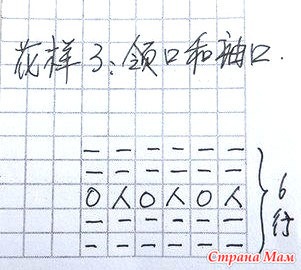 花样3:领口和袖口.
— — — — — —
— — — — — —
O 人 O 人 O 人
— — — — — —
— — — — — —
6行
Страна Мам